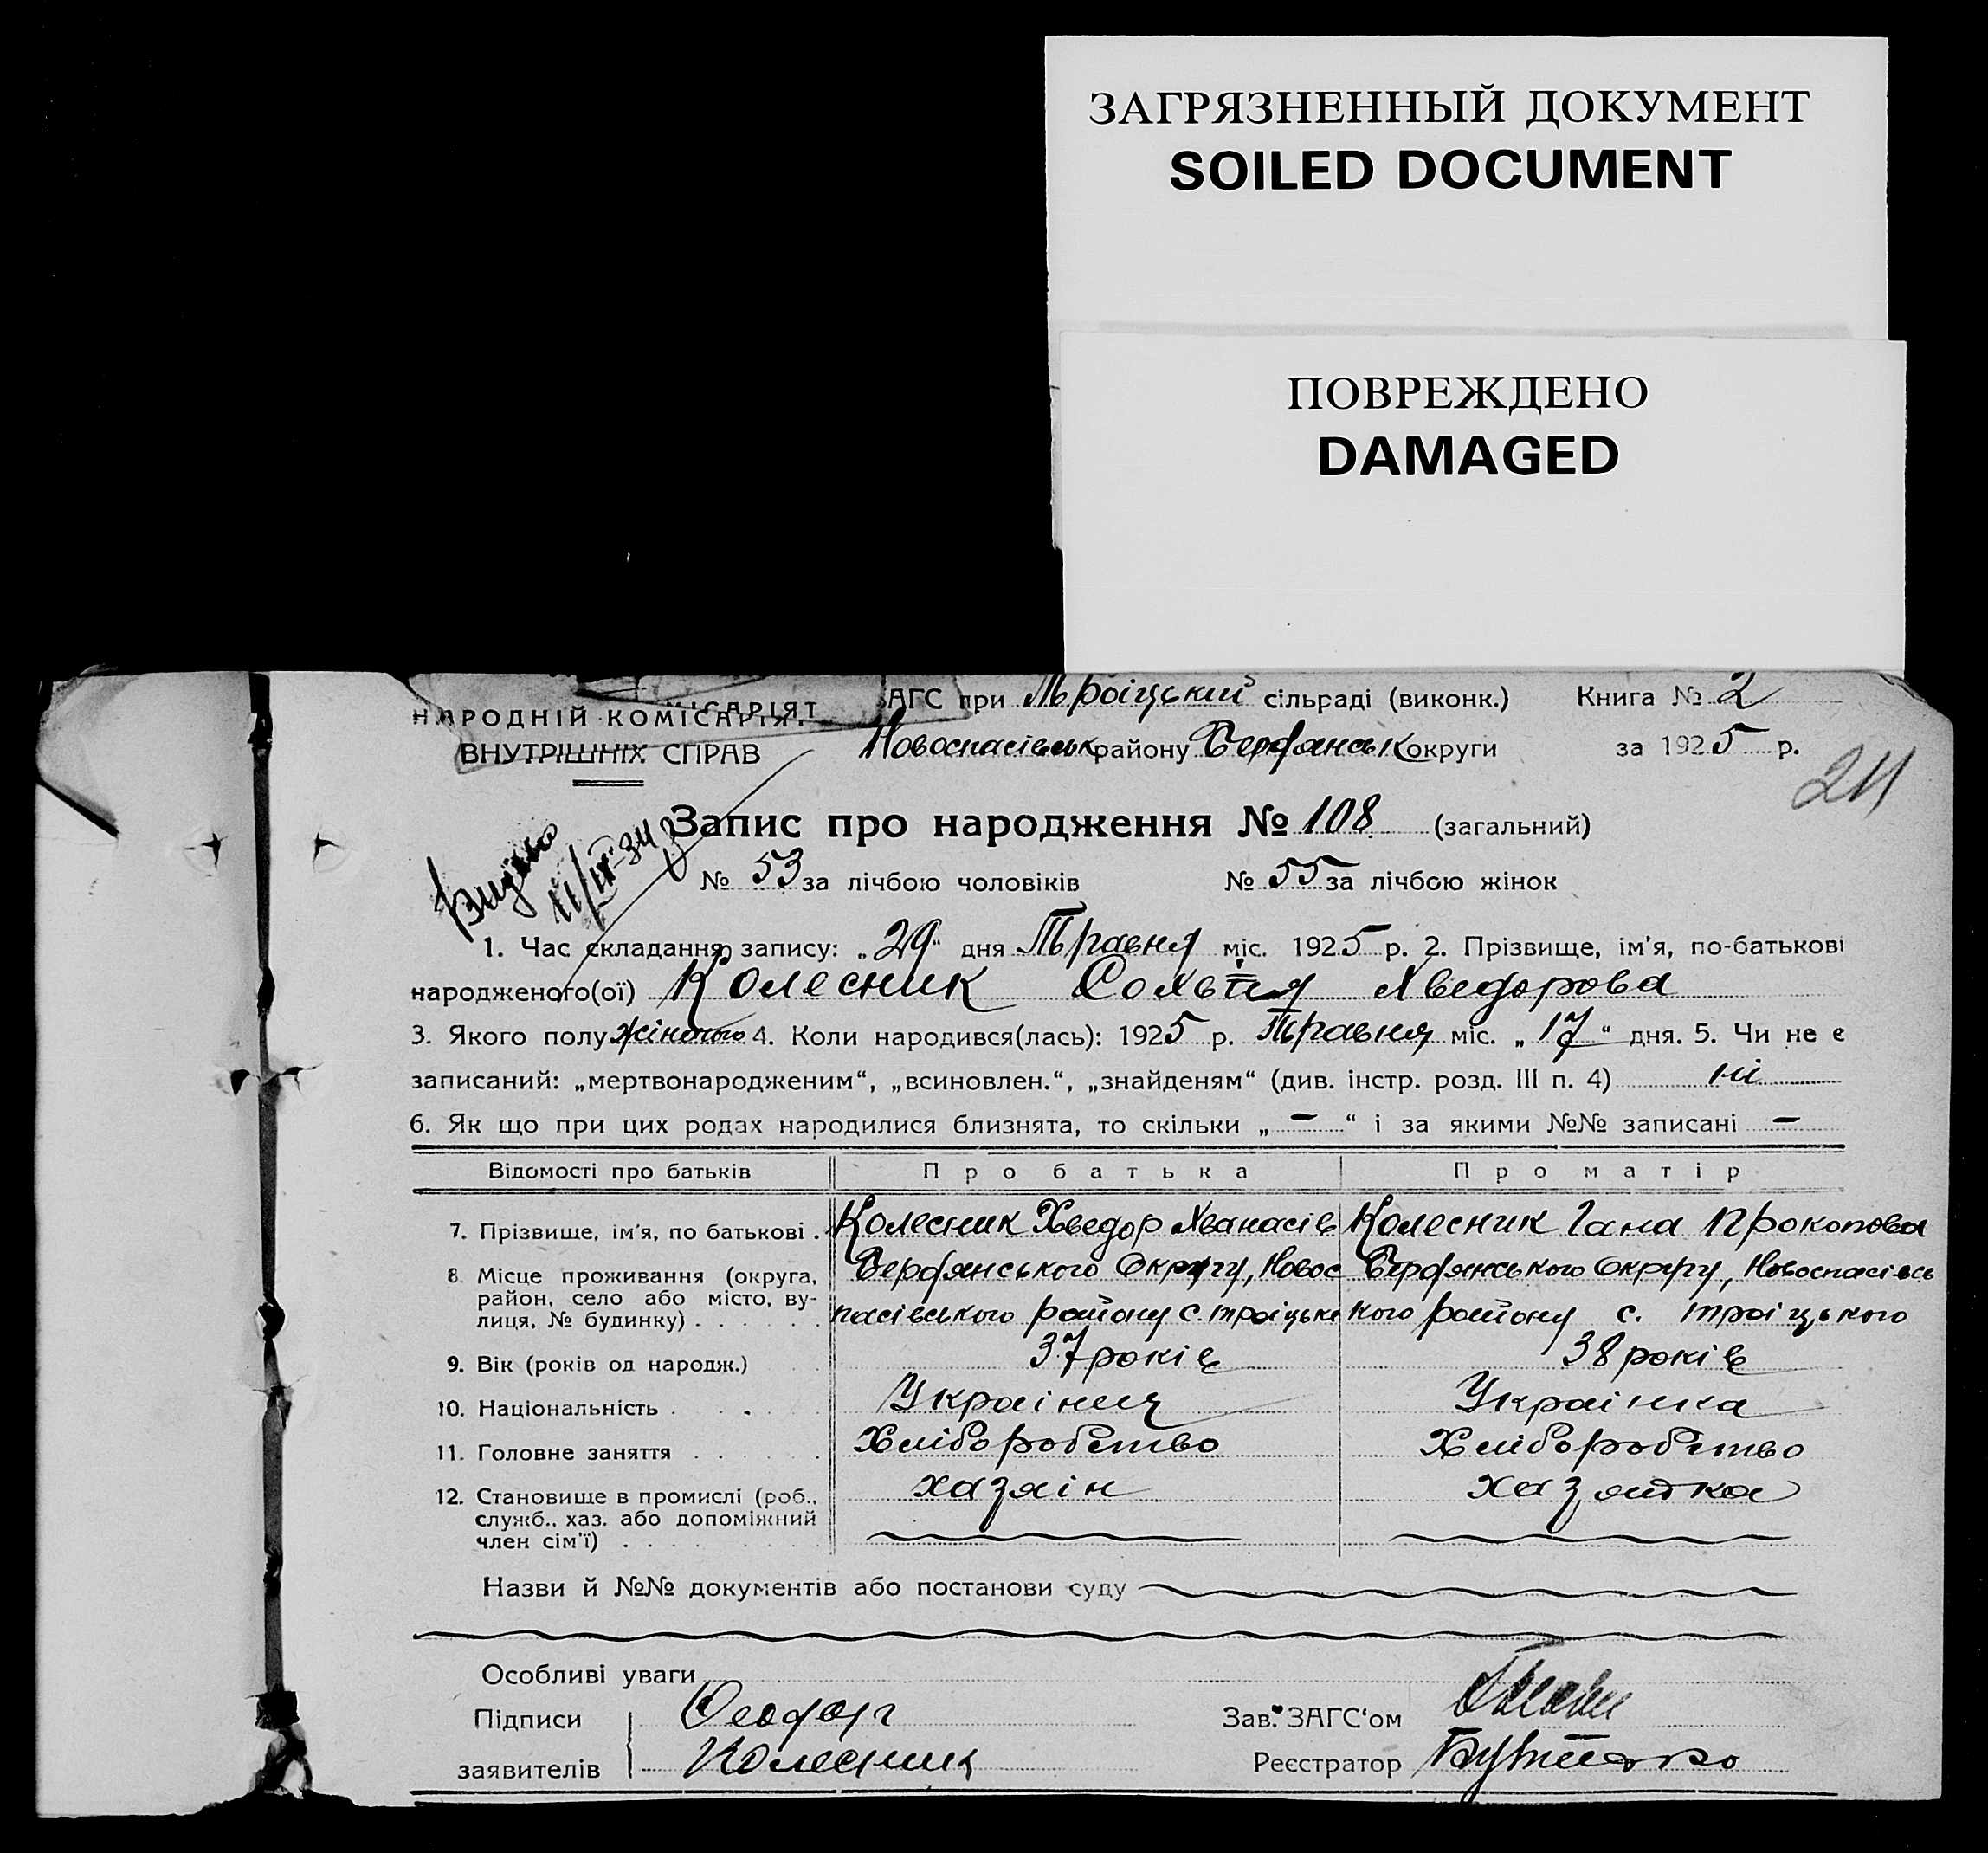 ЗАГРЯЗНЕННЫЙ ДОКУМЕНТ
SOILED DOCUMENT
ПОВРЕЖДЕНО
DAMAGED
НАРОДНІЙ КОМІСАРІЯТ
ВНУТРІШНІХ СПРАВ
АГС при Троіцький сільраді (виконк.) Книга № 2
Новоспасівськ району Бердянськ округи за 1925 р.
24
Запис про народження № 108 (загальний)
Видано
11/IX-34
№ 53 за лічбою чоловіків № 55 за лічбою жінок
1. Час складання запису: „29“ дня Травня міс. 1925 р. 2. Прізвище, ім'я, по-батькові
народженого(ої) Колесник Хведорова
3. Якого полу жіночого 4. Коли народився(лась): 1925 р. Травня міс. „17“ дня. 5. Чи не є
записаний: „мертвонародженим“, „всиновлен.“, „знайденям“ (див. інстр. розд. III п. 4) ні
6. Як що при цих родах народилися близнята, то скільки „ — “ і за якими №№ записані —
Відомості про батьків Про батька Про матір
7. Прізвище, ім'я, по батькові . Колесник Хведор Хванасів Колесник Гана Прокопова
8 Місце проживання (округа, район, село або місто, вулиця, № будинку) . . . . . .
Бердянського Округу, Новос
пасівського району с. троіцьке
Бердянського Округу, Новоспасівсь
кого району с. троіцького
9. Вік (років од народж.) 37 років 38 років
10. Національність . . . Украінец Украінка
11. Головне заняття . . . . . . Хліборобство Хліборобство
12. Становище в промислі (роб., хазяін хазяйка
служб., хаз. або допоміжний
член сім'ї) . . . . . . . . .
Назви й №№ документів або постанови суду
Особливі уваги
Підписи Феодор Зав. ЗАГС'ом
заявителів Колесник Реєстратор